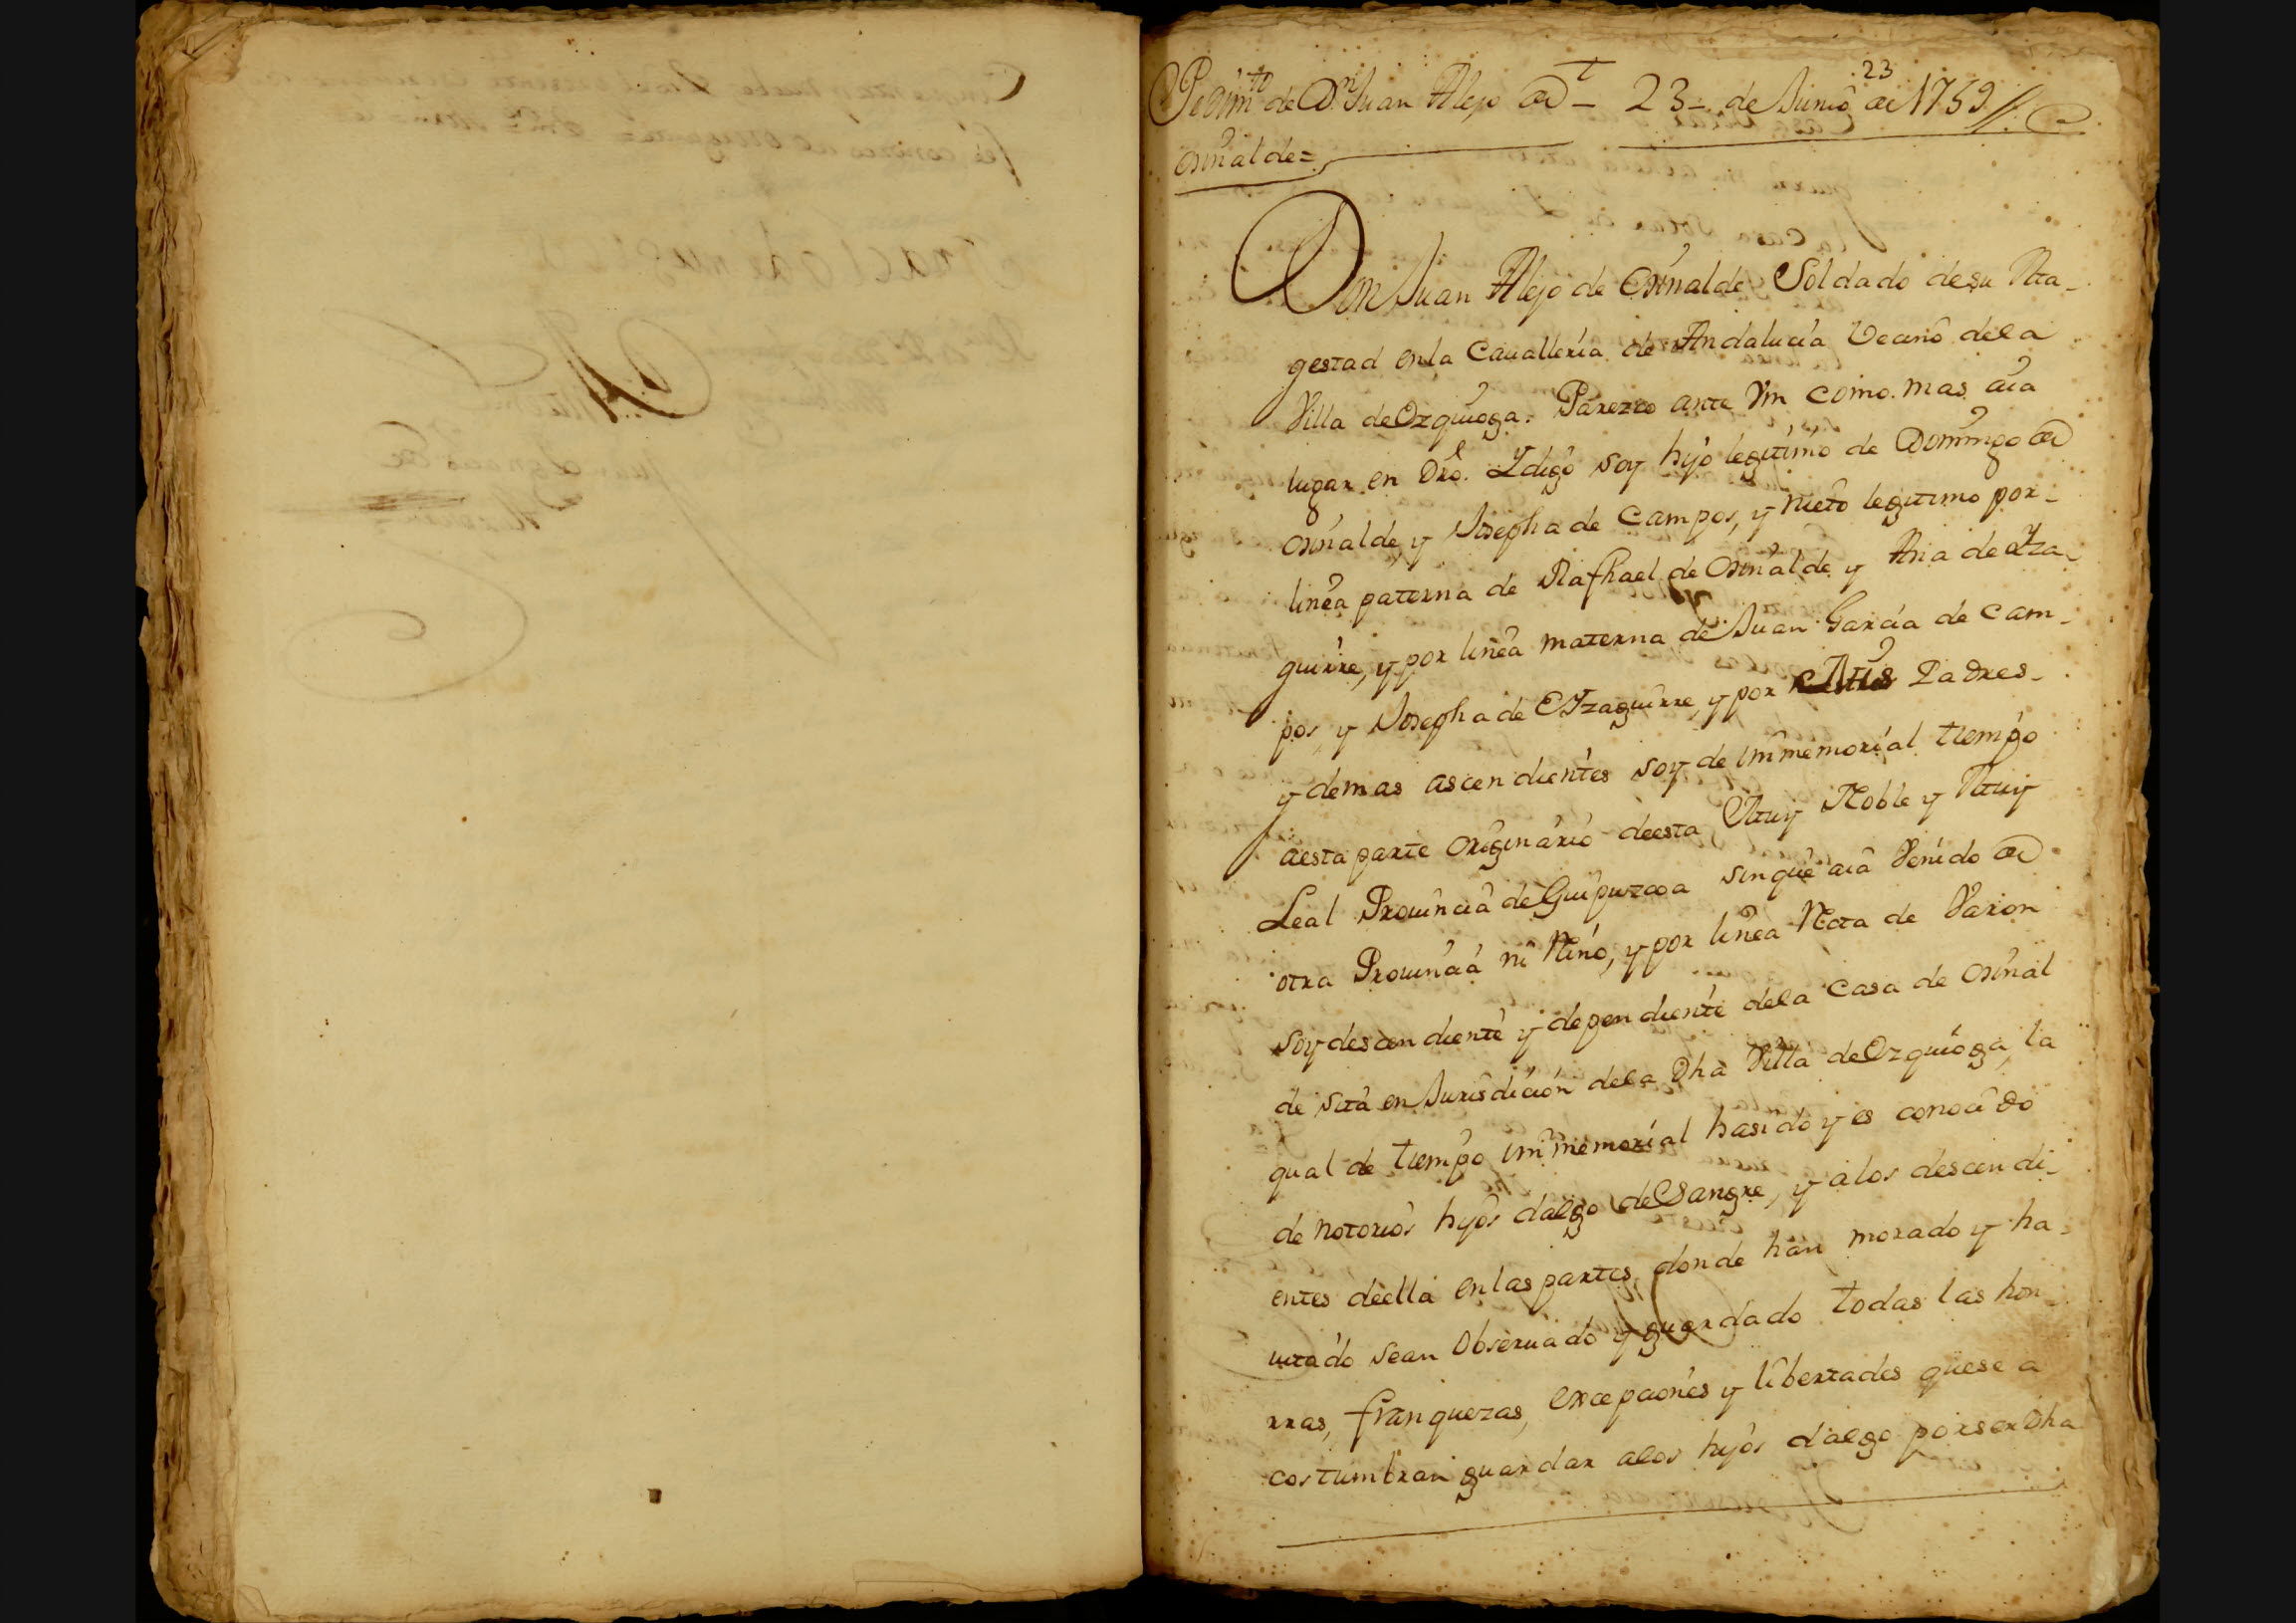 Pedim.to de D.n Juan Alejo de 23 de Junio de 1759
23
Orinalde=
Don Juan Alejo de Orinalde Soldado de su Ma-
gestad en la Cauallería de Andalucía Vecino de la
Villa de Ozquioga. Parezco ante Vm como mas aia
lugar en Dro. Y digo soy hijo legitimo de Domingo de
Orinalde, y Josepha de Campos, y nieto legitimo por-
linea paterna de Raphael de Orinalde y Ana de Yza-
guirre, y por linea materna de Juan Garcia de Cam-
pos, y Josepha de Eyzaguirre, y por Padres-
y demas ascendientes soy de immemorial tiempo
aesta parte originario deesta Muy Noble y Muy
Leal Prouincia de Guipuzcoa sinque aia Venido de
otra Prouincia ni Rino, y por linea Recta de Varon
soy descendiente y dependiente dela Casa de Orinal
de sita en Jurisdicion dela Dha Villa de Ozquioga, la
qual de tiempo immemorial hasido y es conocido
de notorios hijos dalgo de Sangre, y alos descendi-
entes deella enlas partes donde han morado y ha-
uitado sean Obseruado y guardado todas las hon
rras, franquezas, excepciones y libertades quese a
costumbran guardar alos hijos dalgo porser Dha